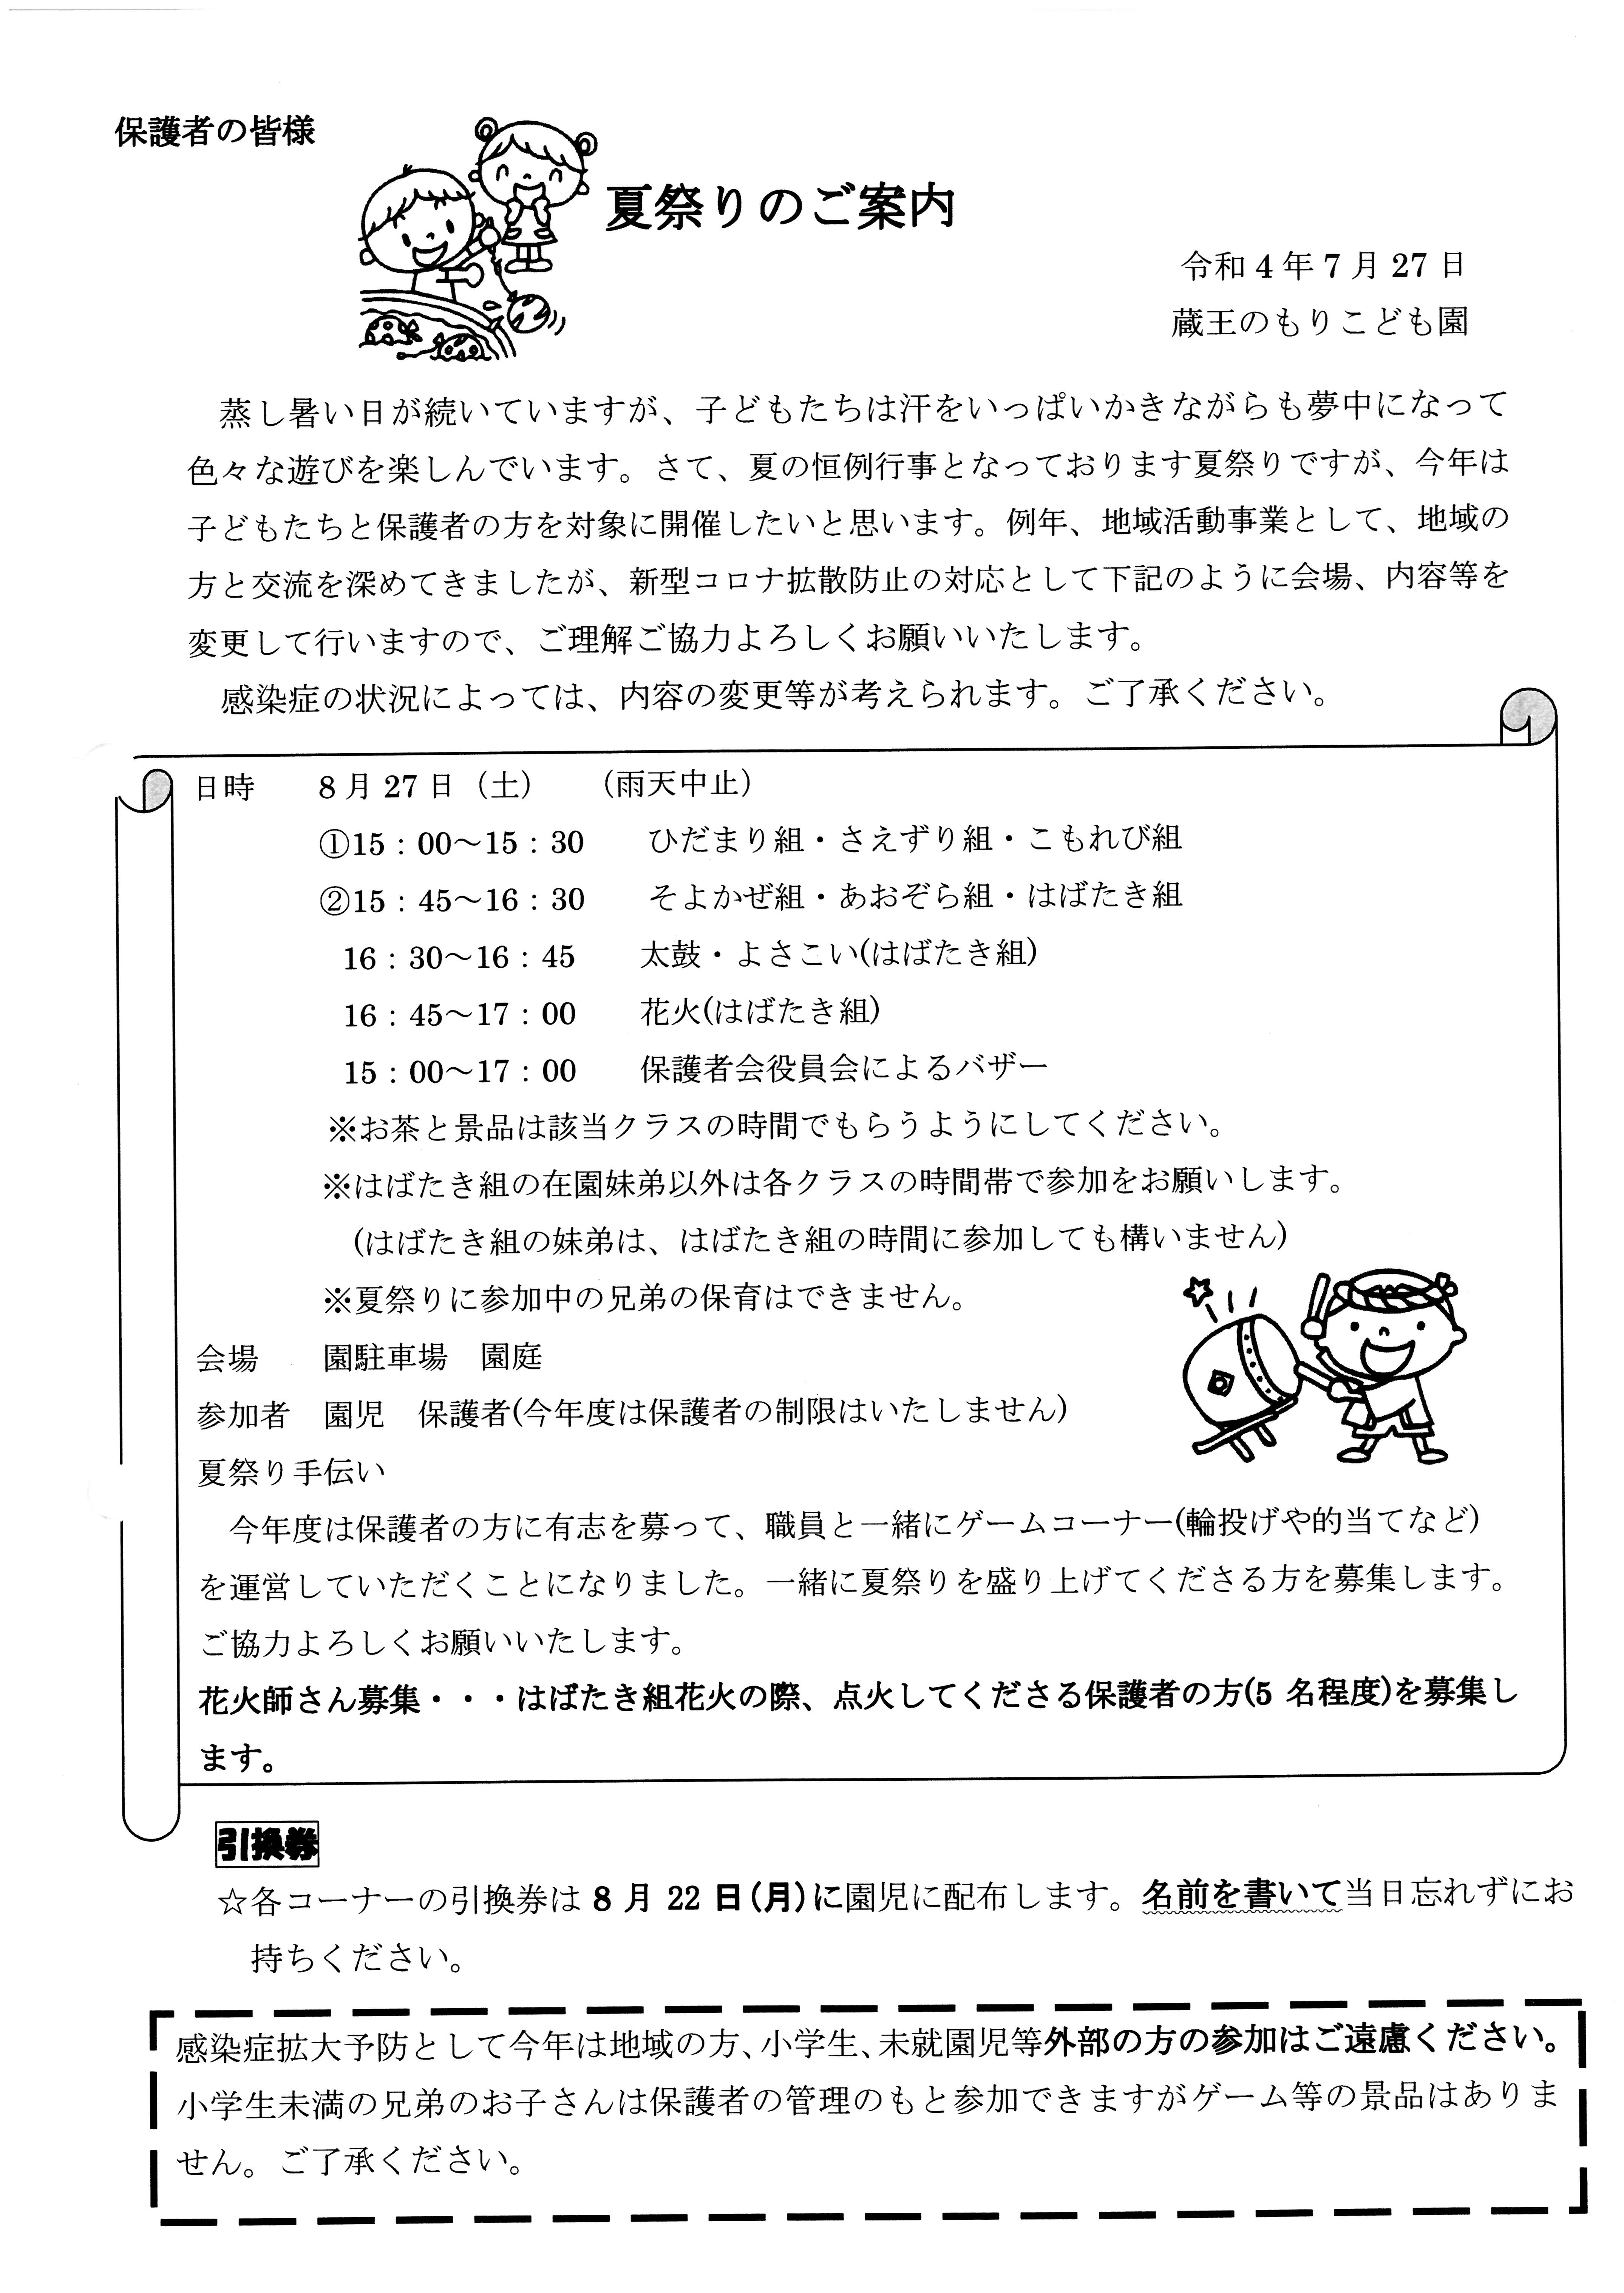 保護者の皆様
夏祭りのご案内
令和4年7月27日
蔵王のもりこども園
蒸し暑い日が続いていますが、子どもたちは汗をいっぱいかきながらも夢中になって
色々な遊びを楽しんでいます。さて、夏の恒例行事となっております夏祭りですが、今年は
子どもたちと保護者の方を対象に開催したいと思います。例年、地域活動事業として、地域の
方と交流を深めてきましたが、新型コロナ拡散防止の対応として下記のように会場、内容等を
変更して行いますので、ご理解ご協力よろしくお願いいたします。
感染症の状況によっては、内容の変更等が考えられます。ご了承ください。
日時　8月27日（土）　（雨天中止）
①15：00～15：30　ひだまり組・さえずり組・こもれび組
②15：45～16：30　そよかぜ組・あおぞら組・はばたき組
16：30～16：45　太鼓・よさこい(はばたき組)
16：45～17：00　花火(はばたき組)
15：00～17：00　保護者会役員会によるバザー
※お茶と景品は該当クラスの時間でもらうようにしてください。
※はばたき組の在園妹弟以外は各クラスの時間帯で参加をお願いします。
(はばたき組の妹弟は、はばたき組の時間に参加しても構いません)
※夏祭りに参加中の兄弟の保育はできません。
会場　園駐車場　園庭
参加者　園児　保護者(今年度は保護者の制限はいたしません)
夏祭り手伝い
今年度は保護者の方に有志を募って、職員と一緒にゲームコーナー(輪投げや的当てなど)
を運営していただくことになりました。一緒に夏祭りを盛り上げてくださる方を募集します。
ご協力よろしくお願いいたします。
花火師さん募集・・・はばたき組花火の際、点火してくださる保護者の方(5名程度)を募集し
ます。
引換券
☆各コーナーの引換券は8月22日(月)に園児に配布します。名前を書いて当日忘れずにお
持ちください。
感染症拡大予防として今年は地域の方、小学生、未就園児等外部の方の参加はご遠慮ください。
小学生未満の兄弟のお子さんは保護者の管理のもと参加できますがゲーム等の景品はありま
せん。ご了承ください。